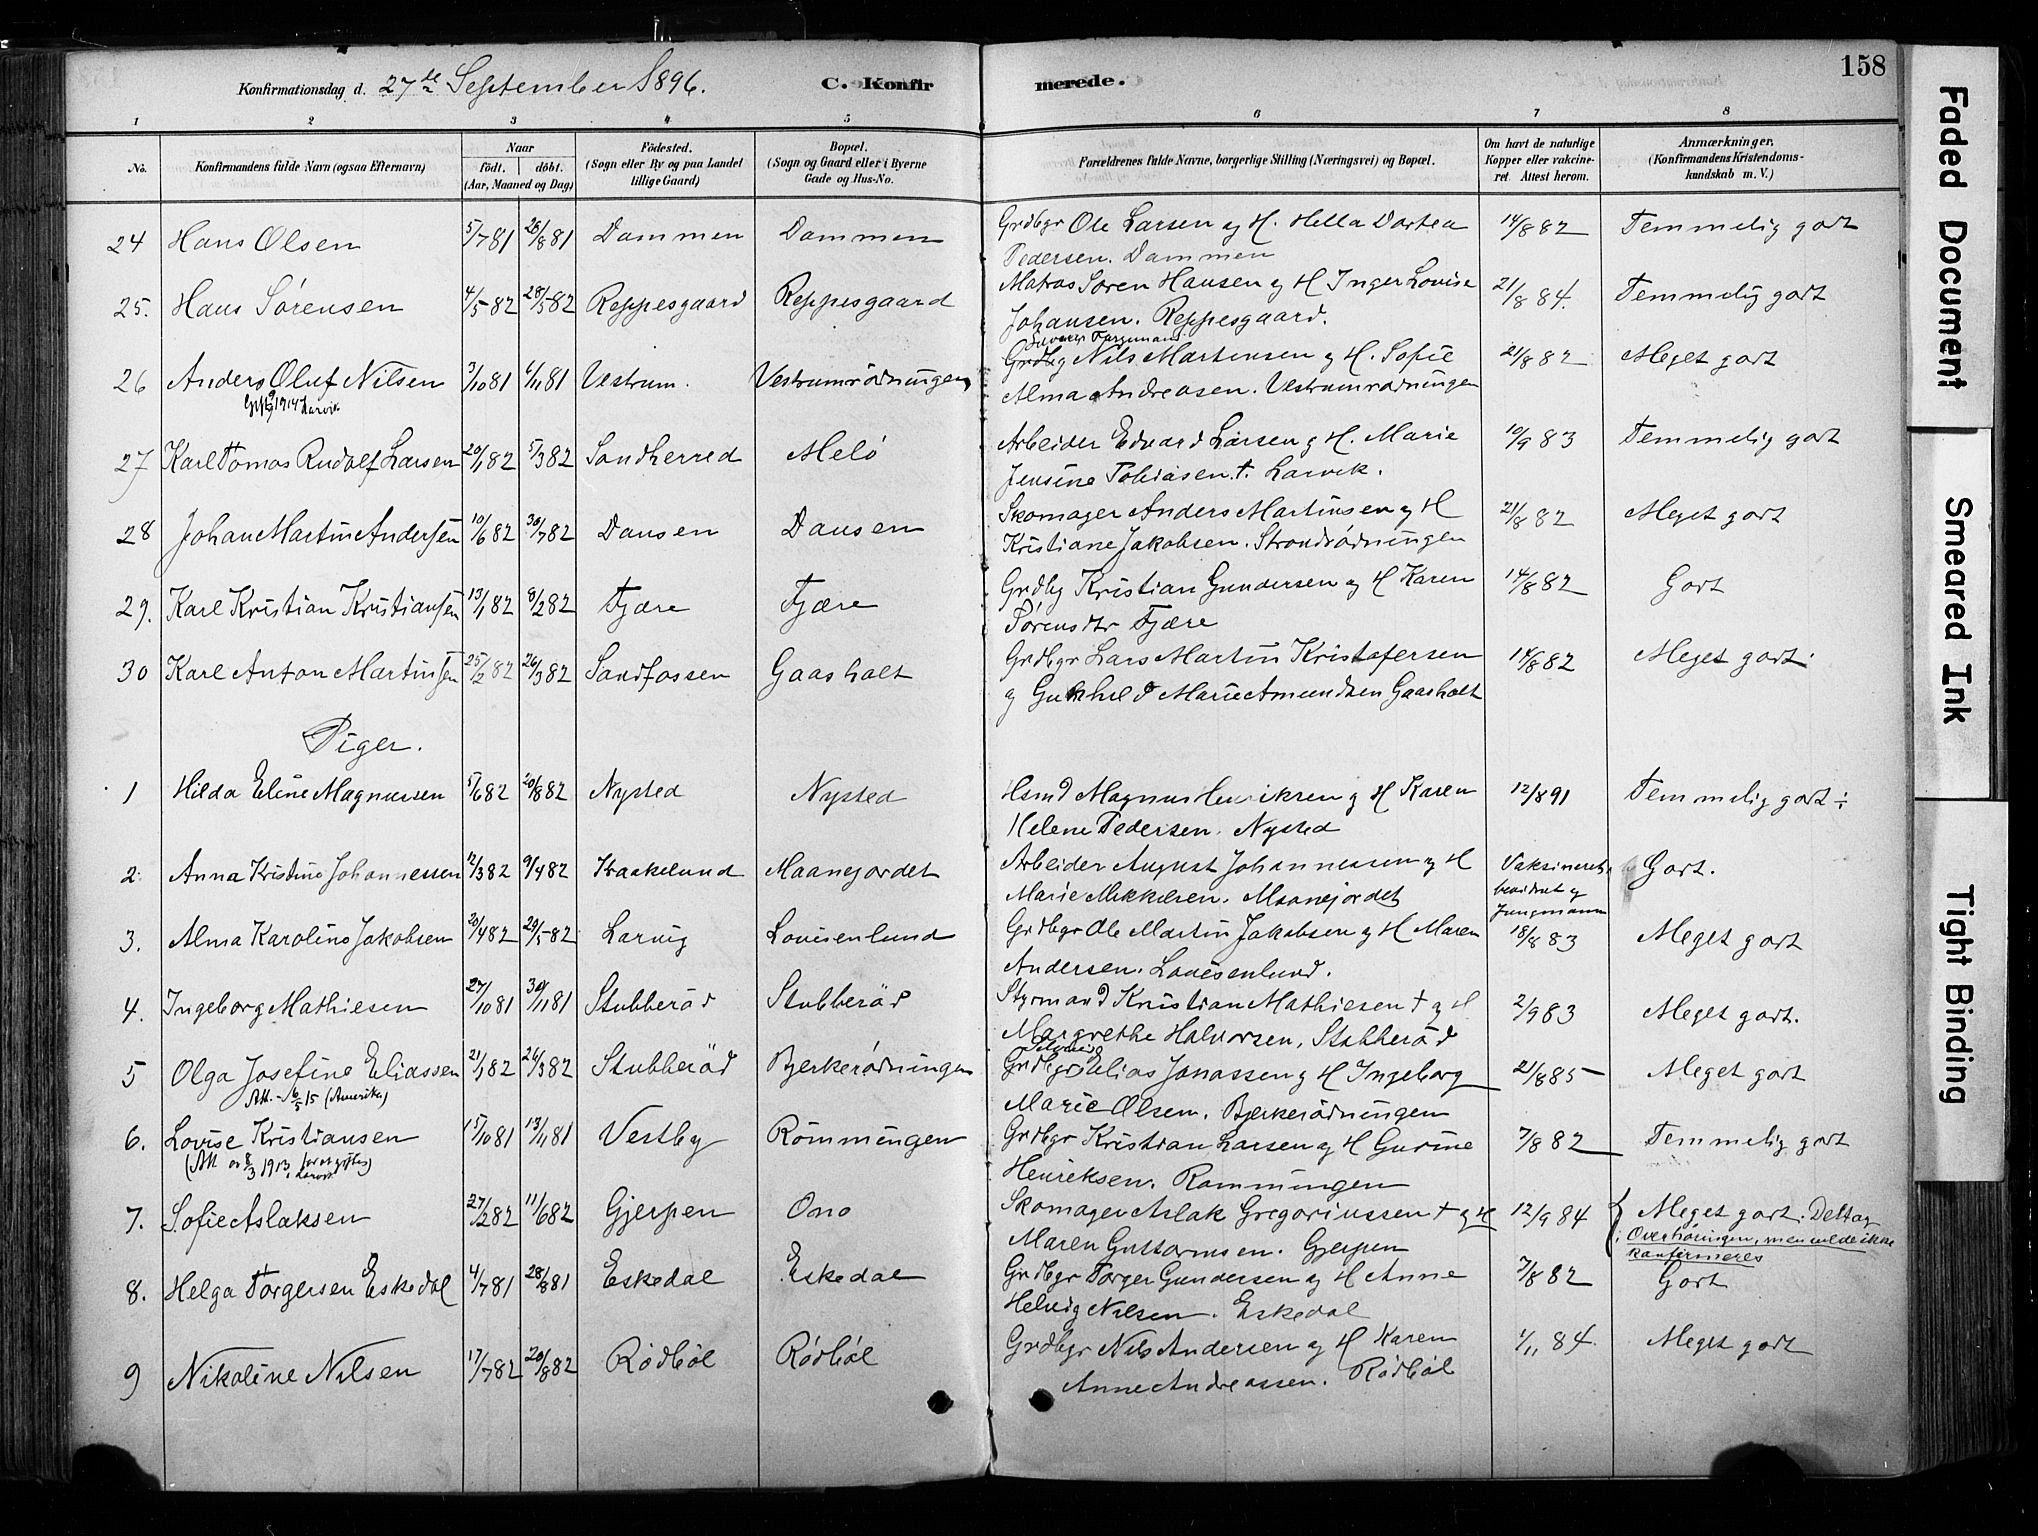 Konfirmationsdag d. 27de September 1896. C. Konfirmerede. 158
1 2 3 4 5 6 7 8
No. Konfirmandens fulde Navn (ogsaa Efternavn) Naar Født. døbt. (Aar, Maaned og Dag) Fødested. (Sogn eller By og paa Landet tillige Gaard) Bopæl. (Sogn og Gaard eller i Byerne Gade og Hus-No. Forældrenes fulde Navne, borgerlige Stilling (Næringsvei) og Bopæl. Om havt de naturlige Kopper eller vakcineret. Attest herom. Anmærkninger. (Konfirmandens Kristendomskundskab m. V.)
24 Hans Olsen 5/7 81 28/8 81 Dammen Dammen Grdbgr Ole Larsen og H. Hella Dortea 14/8 82 Temmelig godt
Pedersen. Dammen
25. Hans Sørensen 4/5 82 28/5 82 Reppesgaard Reppesgaard Matros Søren Hansen og H Inger Lovise 21/8 84. Temmelig godt
Johansen. Reppesgaard.
26 Anders Oluf Nilsen 3/10 81 6/11 81 Vestrum. Vestrumrødningen Grdbg Nils Martinsen og H. Sofie 21/8 82 Meget godt
1914 Larvik Alma Andreasen. Vestrumrødningen
27 Karl Tomas Rudolf Larsen 20/1 82 5/3 82 Sandherred Melø Arbeider Edvard Larsen og H. Marie 10/9 83 Temmelig godt
Jensine Tobiasen †. Larvik.
28 Johan Martin Andersen 10/6 82 30/7 82 Dausen Dausen Skomager Anders Martinsen og H 21/8 82 Meget godt
Kristiane Jakobsen. Strandrødningen
29. Karl Kristian Kristiansen 13/1 82 8/2 82 Fjære Fjære Grdbg Kristian Gundersen og H Karen 14/8 82 Godt
Sørensdtr Fjære
30 Karl Anton Martinsen 25/2 82 26/3 82 Sandfossen Gaasholt Grdbgr Lars Martin Kristofersen 14/8 82 Meget godt.
og Gunhild Marie Amundsen Gaasholt
Piger.
1 Hilda Eline Magnussen 5/6 82 20/8 82 Nysted Nysted Hsmd Magnus Henriksen og H Karen 12/8 91 Temmelig godt ÷
Helene Pedersen. Nysted
2. Anna Kristine Johannessen 12/3 82 9/4 82 Kraakelund Maanejordet Arbeider August Johannessen og H Vaksineret Godt.
Marie Mikkelsen. Maanejordet bevidnet af
Jungmann
3. Alma Karoline Jakobsen 20/4 82 29/5 82 Larvig Lovisenlund Grdbgr Ole Martin Jakobsen og H Maren 18/8 83 Meget godt
Andersen. Lovisenlund.
4. Ingeborg Mathiesen 27/10 81 30/11 81 Stubberød Stubberød Styrmand Kristian Mathiesen † og H 2/9 83 Meget godt.
Margrethe Halvorsen, Stubberød
5 Olga Josefine Eliassen 21/1 82 26/3 82 Stubberød Bjerkerødningen Grdbgr Elias Jonassen og H Ingeborg 21/8 85 Meget godt
Att. - 6/5 15 (Amerika) Marie Olsen. Bjerkerødningen
6. Lovise Kristiansen 15/10 81 13/11 81 Vestby Rømmingen Grdbgr Kristian Larsen og H Gurine 7/8 82 Temmelig godt
(Att 8/3 1913 Larvik) Henriksen. Rømmingen
7. Sofie Aslaksen 27/2 82 11/6 82 Gjerpen Ono Skomager Aslak Gregoriussen † og H 12/9 84 Meget godt. Deltog
Maren Guttormsen. Gjerpen i Overhøringen, men vilde ikke
konfirmeres
8. Helga Torgersen Eskedal 4/7 81 28/8 81 Eskedal Eskedal Grdbgr Torger Gundersen og H Anne 7/8 82 Godt
Helvig Nilsen. Eskedal
9 Nikoline Nilsen 17/7 82 20/8 82 Rødbøl Rødbøl Grdbgr Nils Andersen og H Karen 1/11 84. Meget godt
Anne Andreassen. Rødbøl
Faded Document
Smeared Ink
Tight Binding